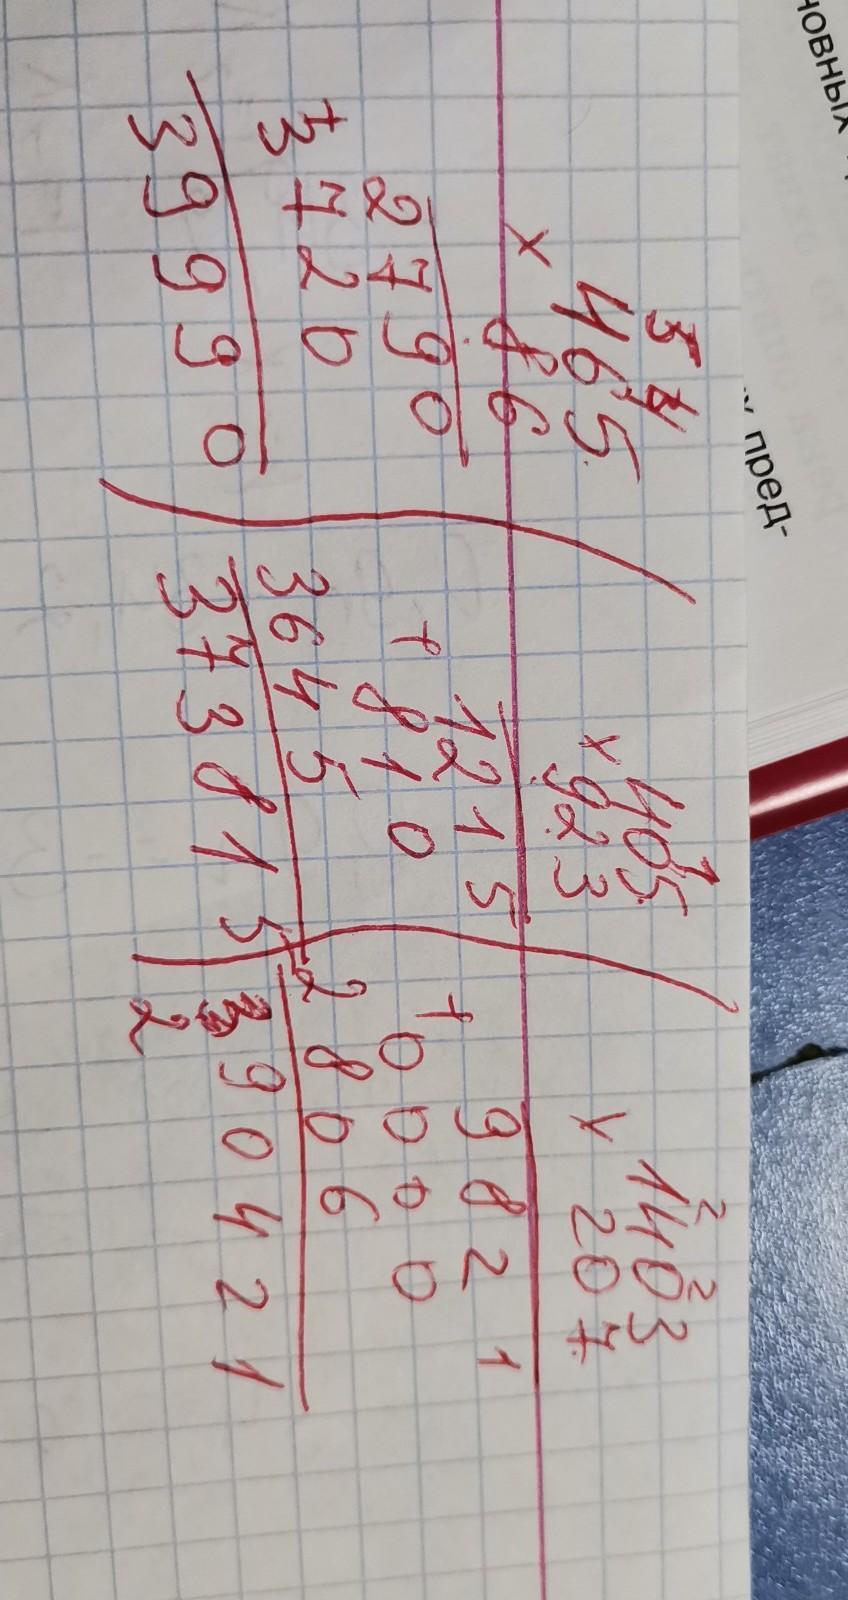 новных
пред-
5 4
465
× 86
2790
+
3720
39990
1
405
× 923
1215
+ 810
3645
373815
2 2
1403
× 207
9821
+ 0000
2806
290421